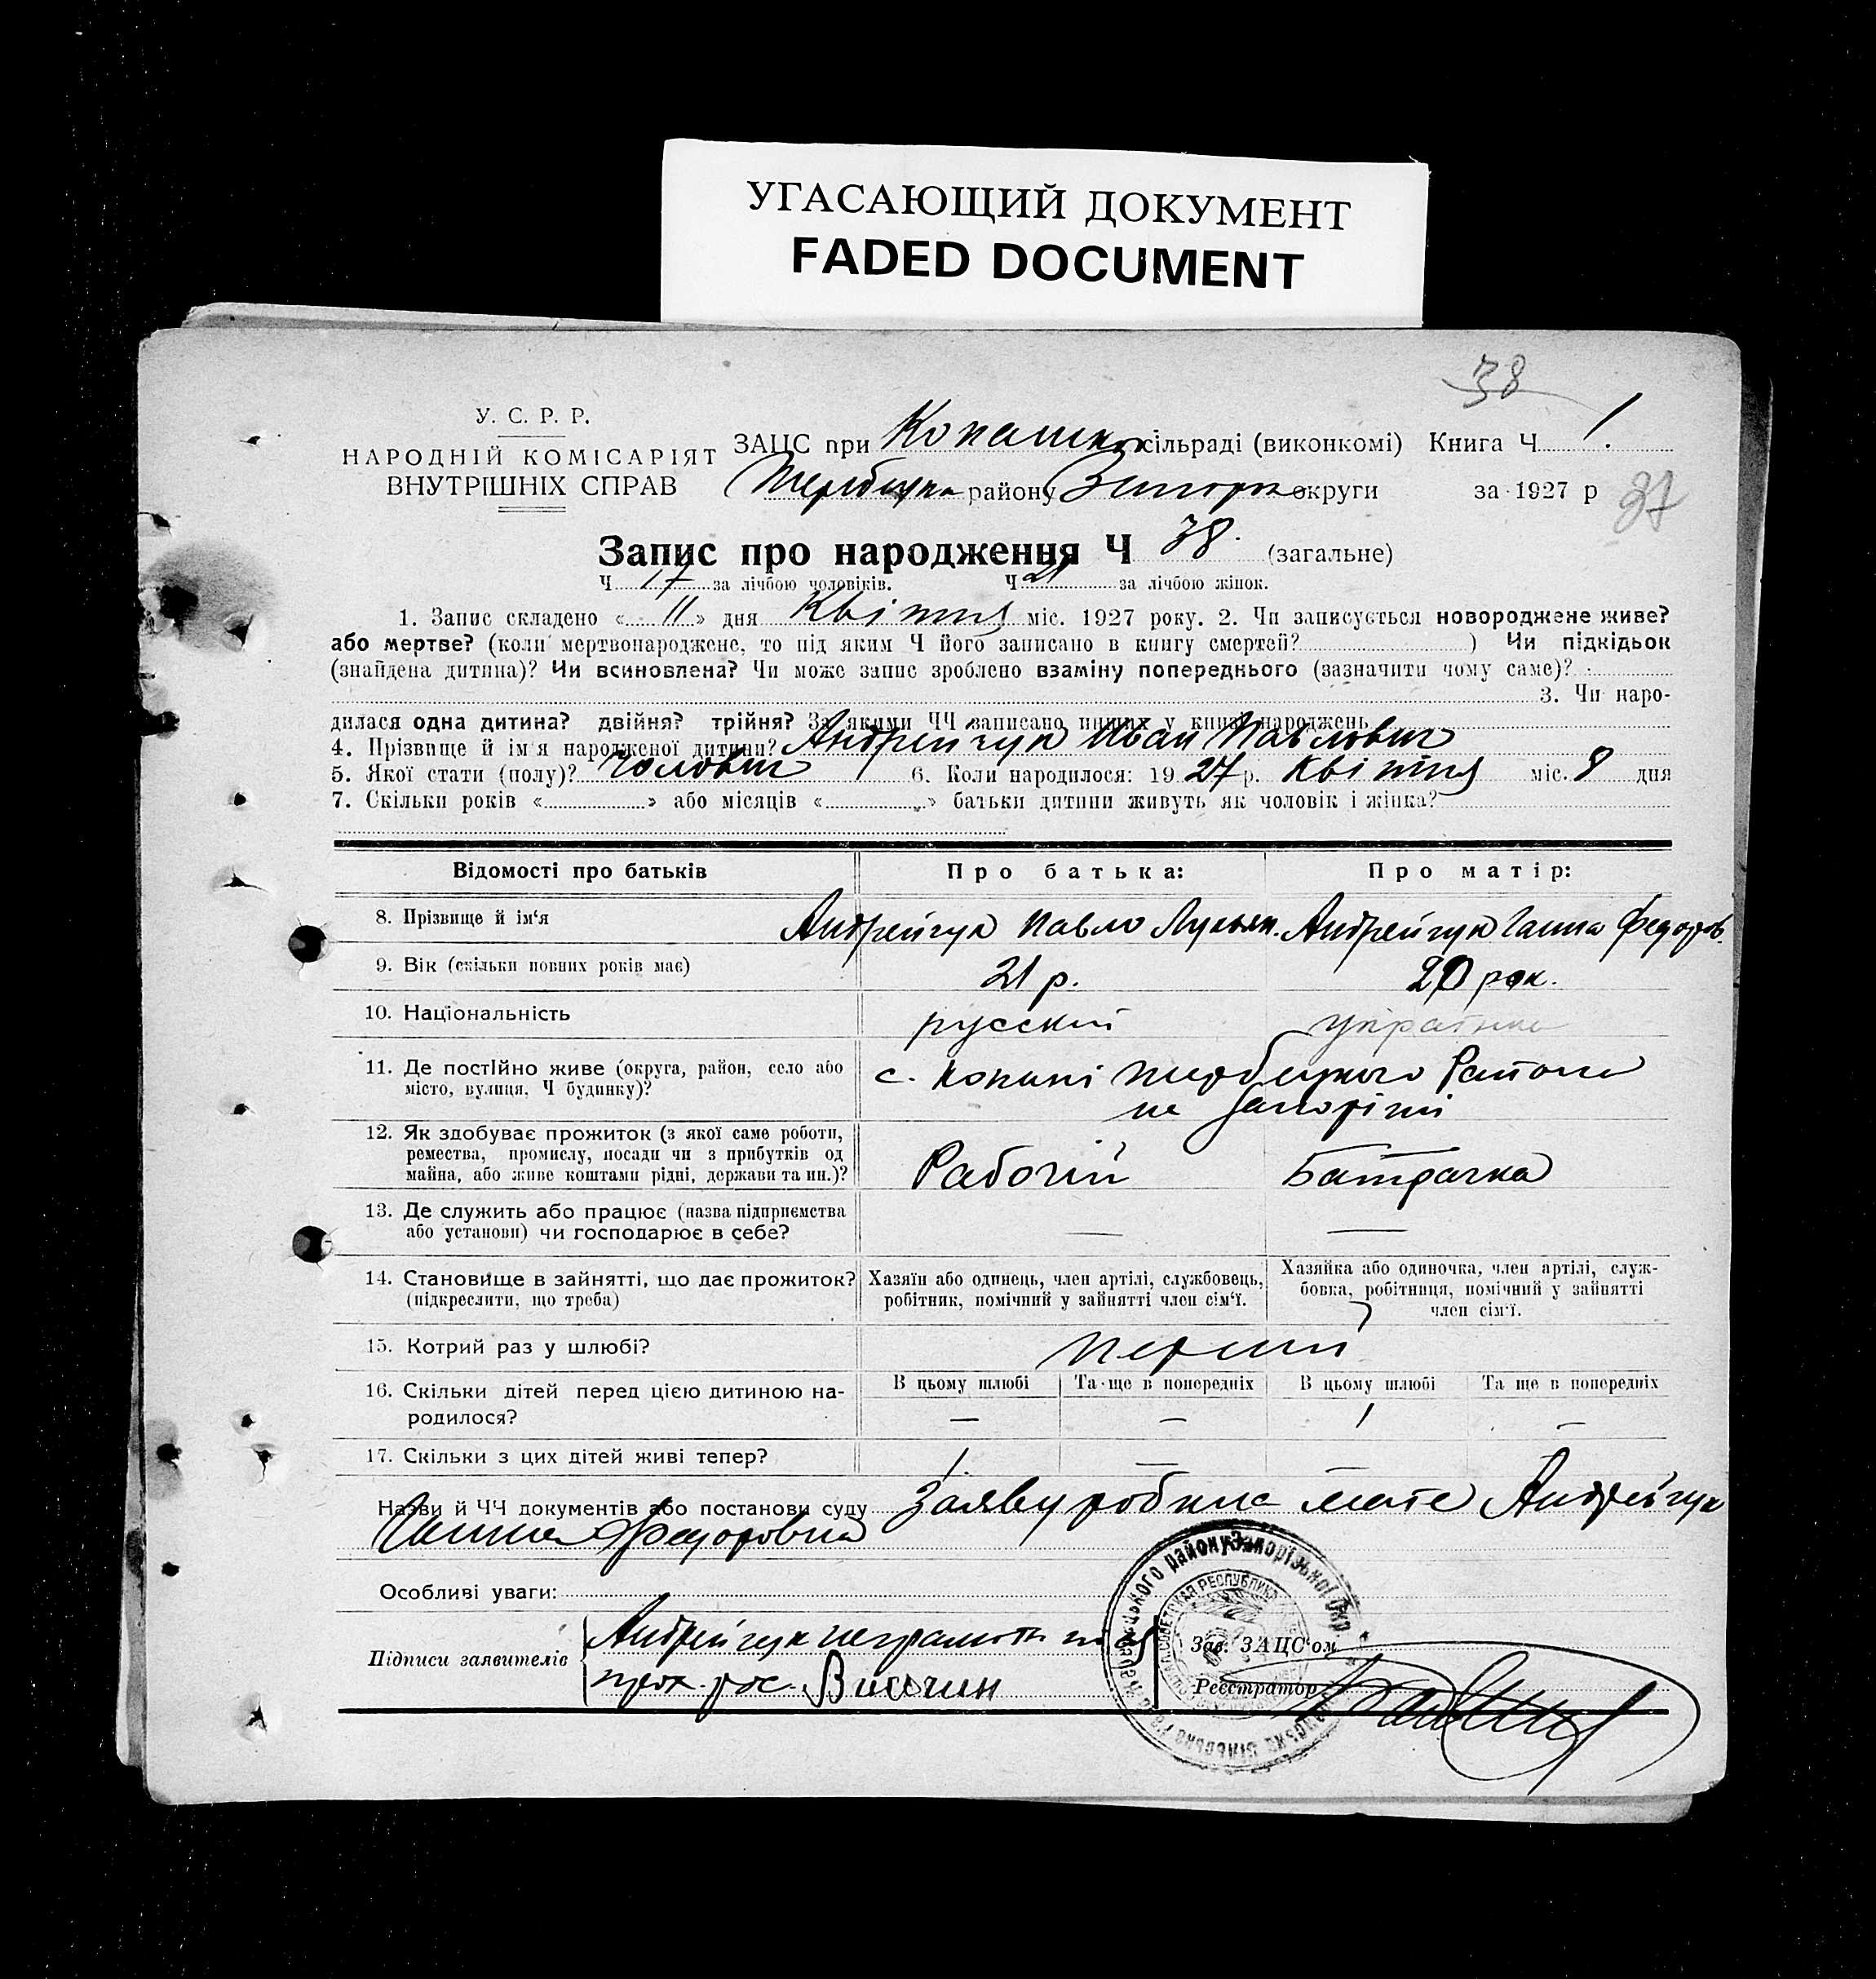 УГАСАЮЩИЙ ДОКУМЕНТ
FADED DOCUMENT
38
У. С. Р. Р.
НАРОДНІЙ КОМІСАРІЯТ
ВНУТРІШНІХ СПРАВ
ЗАЦС при Копашко сільраді (виконкомі) Книга Ч 1.
району Запорж округи за 1927 р
37
Запис про народження Ч 38. (загальне)
Ч 17 за лічбою чоловіків. Ч 21 за лічбою жінок.
1. Запис складено « 11 » дня Квітня міс. 1927 року. 2. Чи записується новороджене живе?
або мертве? (коли мертвонароджене, то під яким Ч його записано в книгу смертей? ) Чи підкідьок
(знайдена дитина)? Чи всиновлена? Чи може запис зроблено взаміну попереднього (зазначити чому саме)?
3. Чи наро-
дилася одна дитина? двійня? трійня? За якими ЧЧ записано инших у книзі народжень
4. Прізвище й ім'я народженої дитини? Андрейчук Иван Павлович
5. Якої стати (полу)? Чоловіч 6. Коли народилося: 1927 р. Квітня міс. 8 дня
7. Скільки років « » або місяців « » батьки дитини живуть як чоловік і жінка?
Відомості про батьків Про батька: Про матір:
8. Прізвище й ім'я Андрейчук Павло Лукьян. Андрейчук Ганна Федоров.
9. Вік (скільки повних років має) 21 р. 20 рок.
10. Національність русский українка
11. Де постійно живе (округа, район, село або
місто, вулиця, Ч будинку)?
с. Копані Района
на Запоріжі
12. Як здобуває прожиток (з якої саме роботи,
ремества, промислу, посади чи з прибутків од
майна, або живе коштами рідні, держави та ин.)?
Рабочій Батрачка
13. Де служить або працює (назва підприємства
або установи) чи господарює в себе? — —
14. Становище в зайнятті, що дає прожиток?
(підкреслити, що треба)
Хазяїн або одинець, член артілі, службовець,
робітник, помічний у зайнятті член сім'ї.
Хазяйка або одиночка, член артілі, служ-
бовка, робітниця, помічний у зайнятті
член сім'ї.
15. Котрий раз у шлюбі? перший
16. Скільки дітей перед цією дитиною на-
родилося?
В цьому шлюбі Та ще в попередніх В цьому шлюбі Та ще в попередніх
— — 1 —
17. Скільки з цих дітей живі тепер? 1. — —
Назви й ЧЧ документів або постанови суду Заяву робила мате Андрейчук
Ганна Федоровна
Особливі уваги:
Підписи заявителів Андрейчук неграмотн
прох. рос. Височин
Зав. ЗАЦС'ом
Реєстратор
району Запорізької Окр.